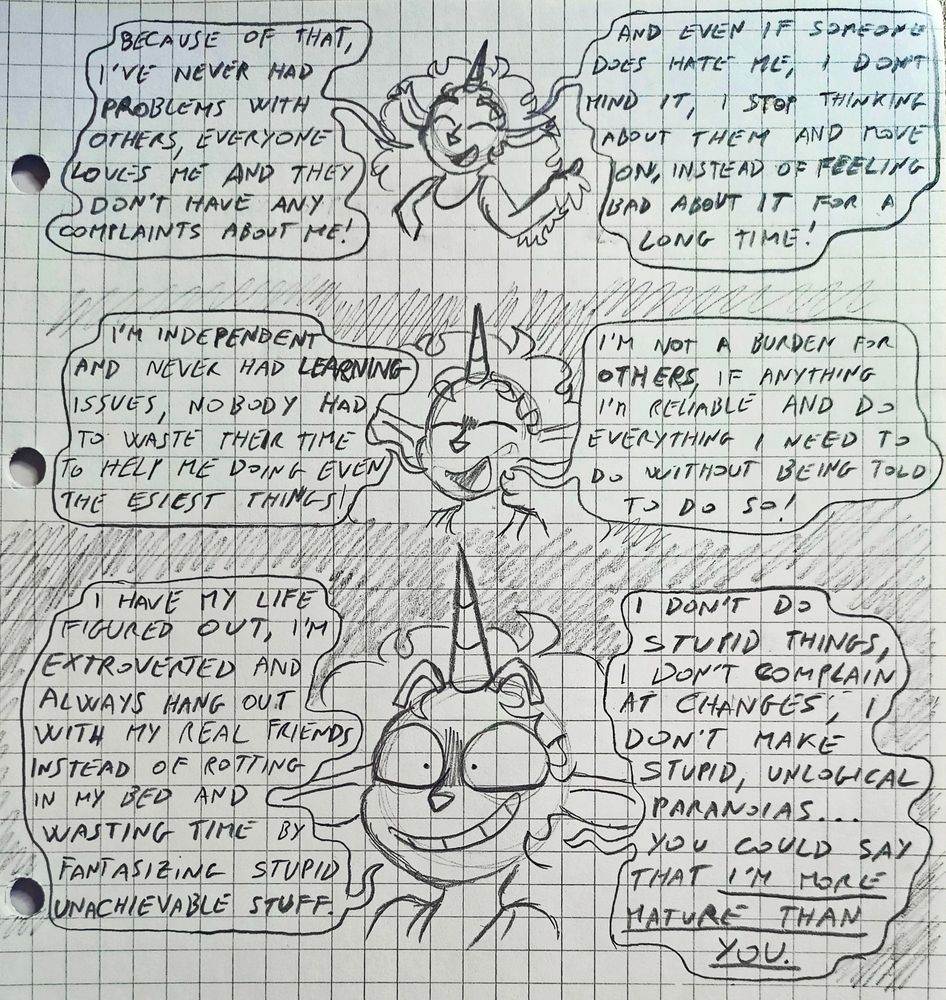 BECAUSE OF THAT,
I'VE NEVER HAD
PROBLEMS WITH
OTHERS, EVERYONE
LOVES ME AND THEY
DON'T HAVE ANY
COMPLAINTS ABOUT ME!
AND EVEN IF SOMEONE
DOES HATE ME, I DON'T
MIND IT, I STOP THINKING
ABOUT THEM AND MOVE
ON, INSTEAD OF FEELING
BAD ABOUT IT FOR A
LONG TIME!
I'M INDEPENDENT
AND NEVER HAD LEARNING
ISSUES, NOBODY HAD
TO WASTE THEIR TIME
TO HELP ME DOING EVEN
THE ESIEST THINGS!
I'M NOT A BURDEN FOR
OTHERS, IF ANYTHING
I'M RELIABLE AND DO
EVERYTHING I NEED TO
DO WITHOUT BEING TOLD
TO DO SO!
I HAVE MY LIFE
FIGURED OUT, I'M
EXTROVERTED AND
ALWAYS HANG OUT
WITH MY REAL FRIENDS
INSTEAD OF ROTTING
IN MY BED AND
WASTING TIME BY
FANTASIZING STUPID
UNACHIEVABLE STUFF.
I DON'T DO
STUPID THINGS,
I DON'T COMPLAIN
AT CHANGES, I
DON'T MAKE
STUPID, UNLOGICAL
PARANOIAS...
YOU COULD SAY
THAT I'M MORE
MATURE THAN
YOU.